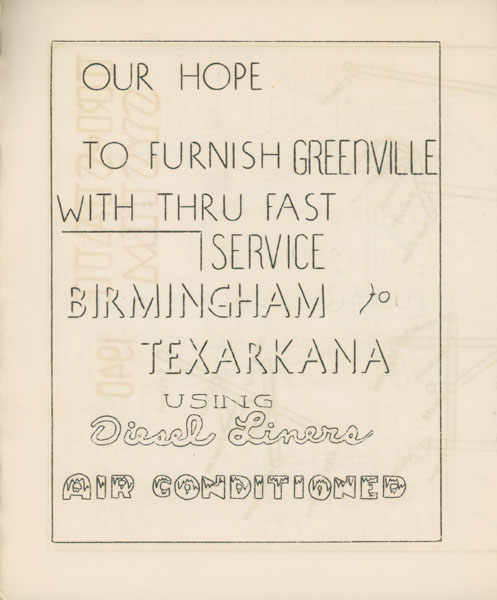 OUR HOPE
TO FURNISH GREENVILLE
WITH THRU FAST
SERVICE
BIRMINGHAM to
TEXARKANA
USING
Diesel Liners
AIR CONDITIONED